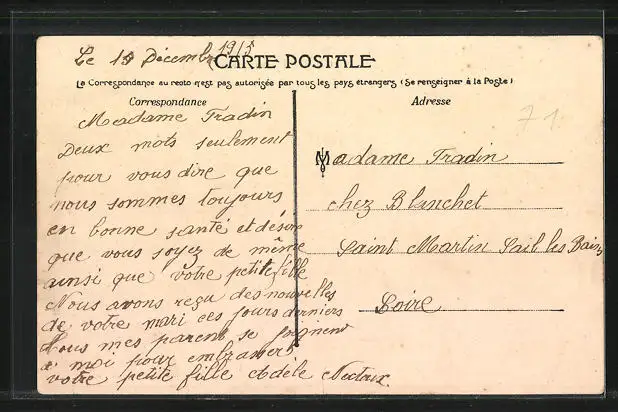 Le 15 Décembre 1915
CARTE POSTALE
La Correspondance au recto n'est pas autorisée par tous les pays étrangers (Se renseigner à la Poste)
Correspondance
Madame Fradin
Deux mots seulement
pour vous dire que
nous sommes toujours
en bonne santé et désire
que vous soyez de même
ainsi que votre petite fille
Nous avons reçu des nouvelles
de votre mari ces jours derniers
Nous mes parent se joignent
a moi pour embrasser
votre petite fille Adèle
Adresse
71
Madame Fradin
chez Blanchet
Saint Martin Sail les Bains
Loire